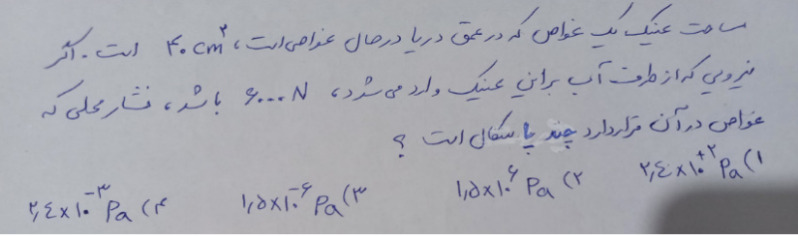 مساحت عینک یک غواص که در عمق دریا در حال غواصی است، ۴۰ cm² است. اگر
نیرویی که از طرف آب بر این عینک وارد می شود، ۶۰۰۰ N باشد، فشار محلی که
غواص در آن قرار دارد چند پاسکال است ؟
۱) ۲,۴×۱۰⁺² Pa ۲) ۱,۵×۱۰⁶ Pa ۳) ۱,۵×۱۰⁻⁶ Pa ۴) ۲,۴×۱۰⁻³ Pa